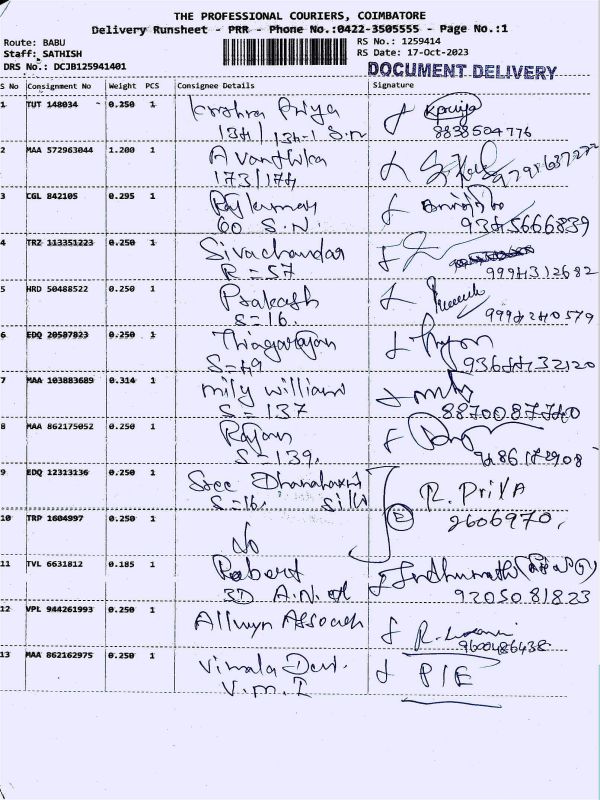 THE PROFESSIONAL COURIERS, COIMBATORE
Delivery Runsheet - PRR - Phone No.:0422-3505555 - Page No.:1
Route: BABU
Staff: SATHISH
DRS No.: DCJB125941401
RS No.: 1259414
RS Date: 17-Oct-2023
DOCUMENT DELIVERY
S No Consignment No Weight PCS Consignee Details Signature
1 TUT 148034 0.250 1 Krishna Priya
134/134-1 S.N
8838504776
2 MAA 572963044 1.200 1 Avanthika
173/174
3 CGL 842105 0.295 1 Rajkumar
60 S.N.
9345666839
4 TRZ 113351223 0.250 1 Sivachandar
R=57
9994312682
5 HRD 50488522 0.250 1 Prakash
S=16.
9994240579
6 EDQ 20587823 0.250 1 Thiagarajan
S=49
9364432120
7 MAA 103883689 0.314 1 mily william
S=137
8870087740
8 MAA 862175052 0.250 1 Rajan
S=139.
9486172908
9 EDQ 12313136 0.250 1 Sree Dhanalaxmi
S=16, Silks
R. PriyA
2606970,
10 TRP 1604997 0.250 1
11 TVL 6631812 0.185 1 Robert
3D A.N.
9205081823
12 VPL 944261993 0.250 1 Allwyn Assocati
9600486438
13 MAA 862162975 0.250 1 Vimala Devi.
V.M.I
P/E